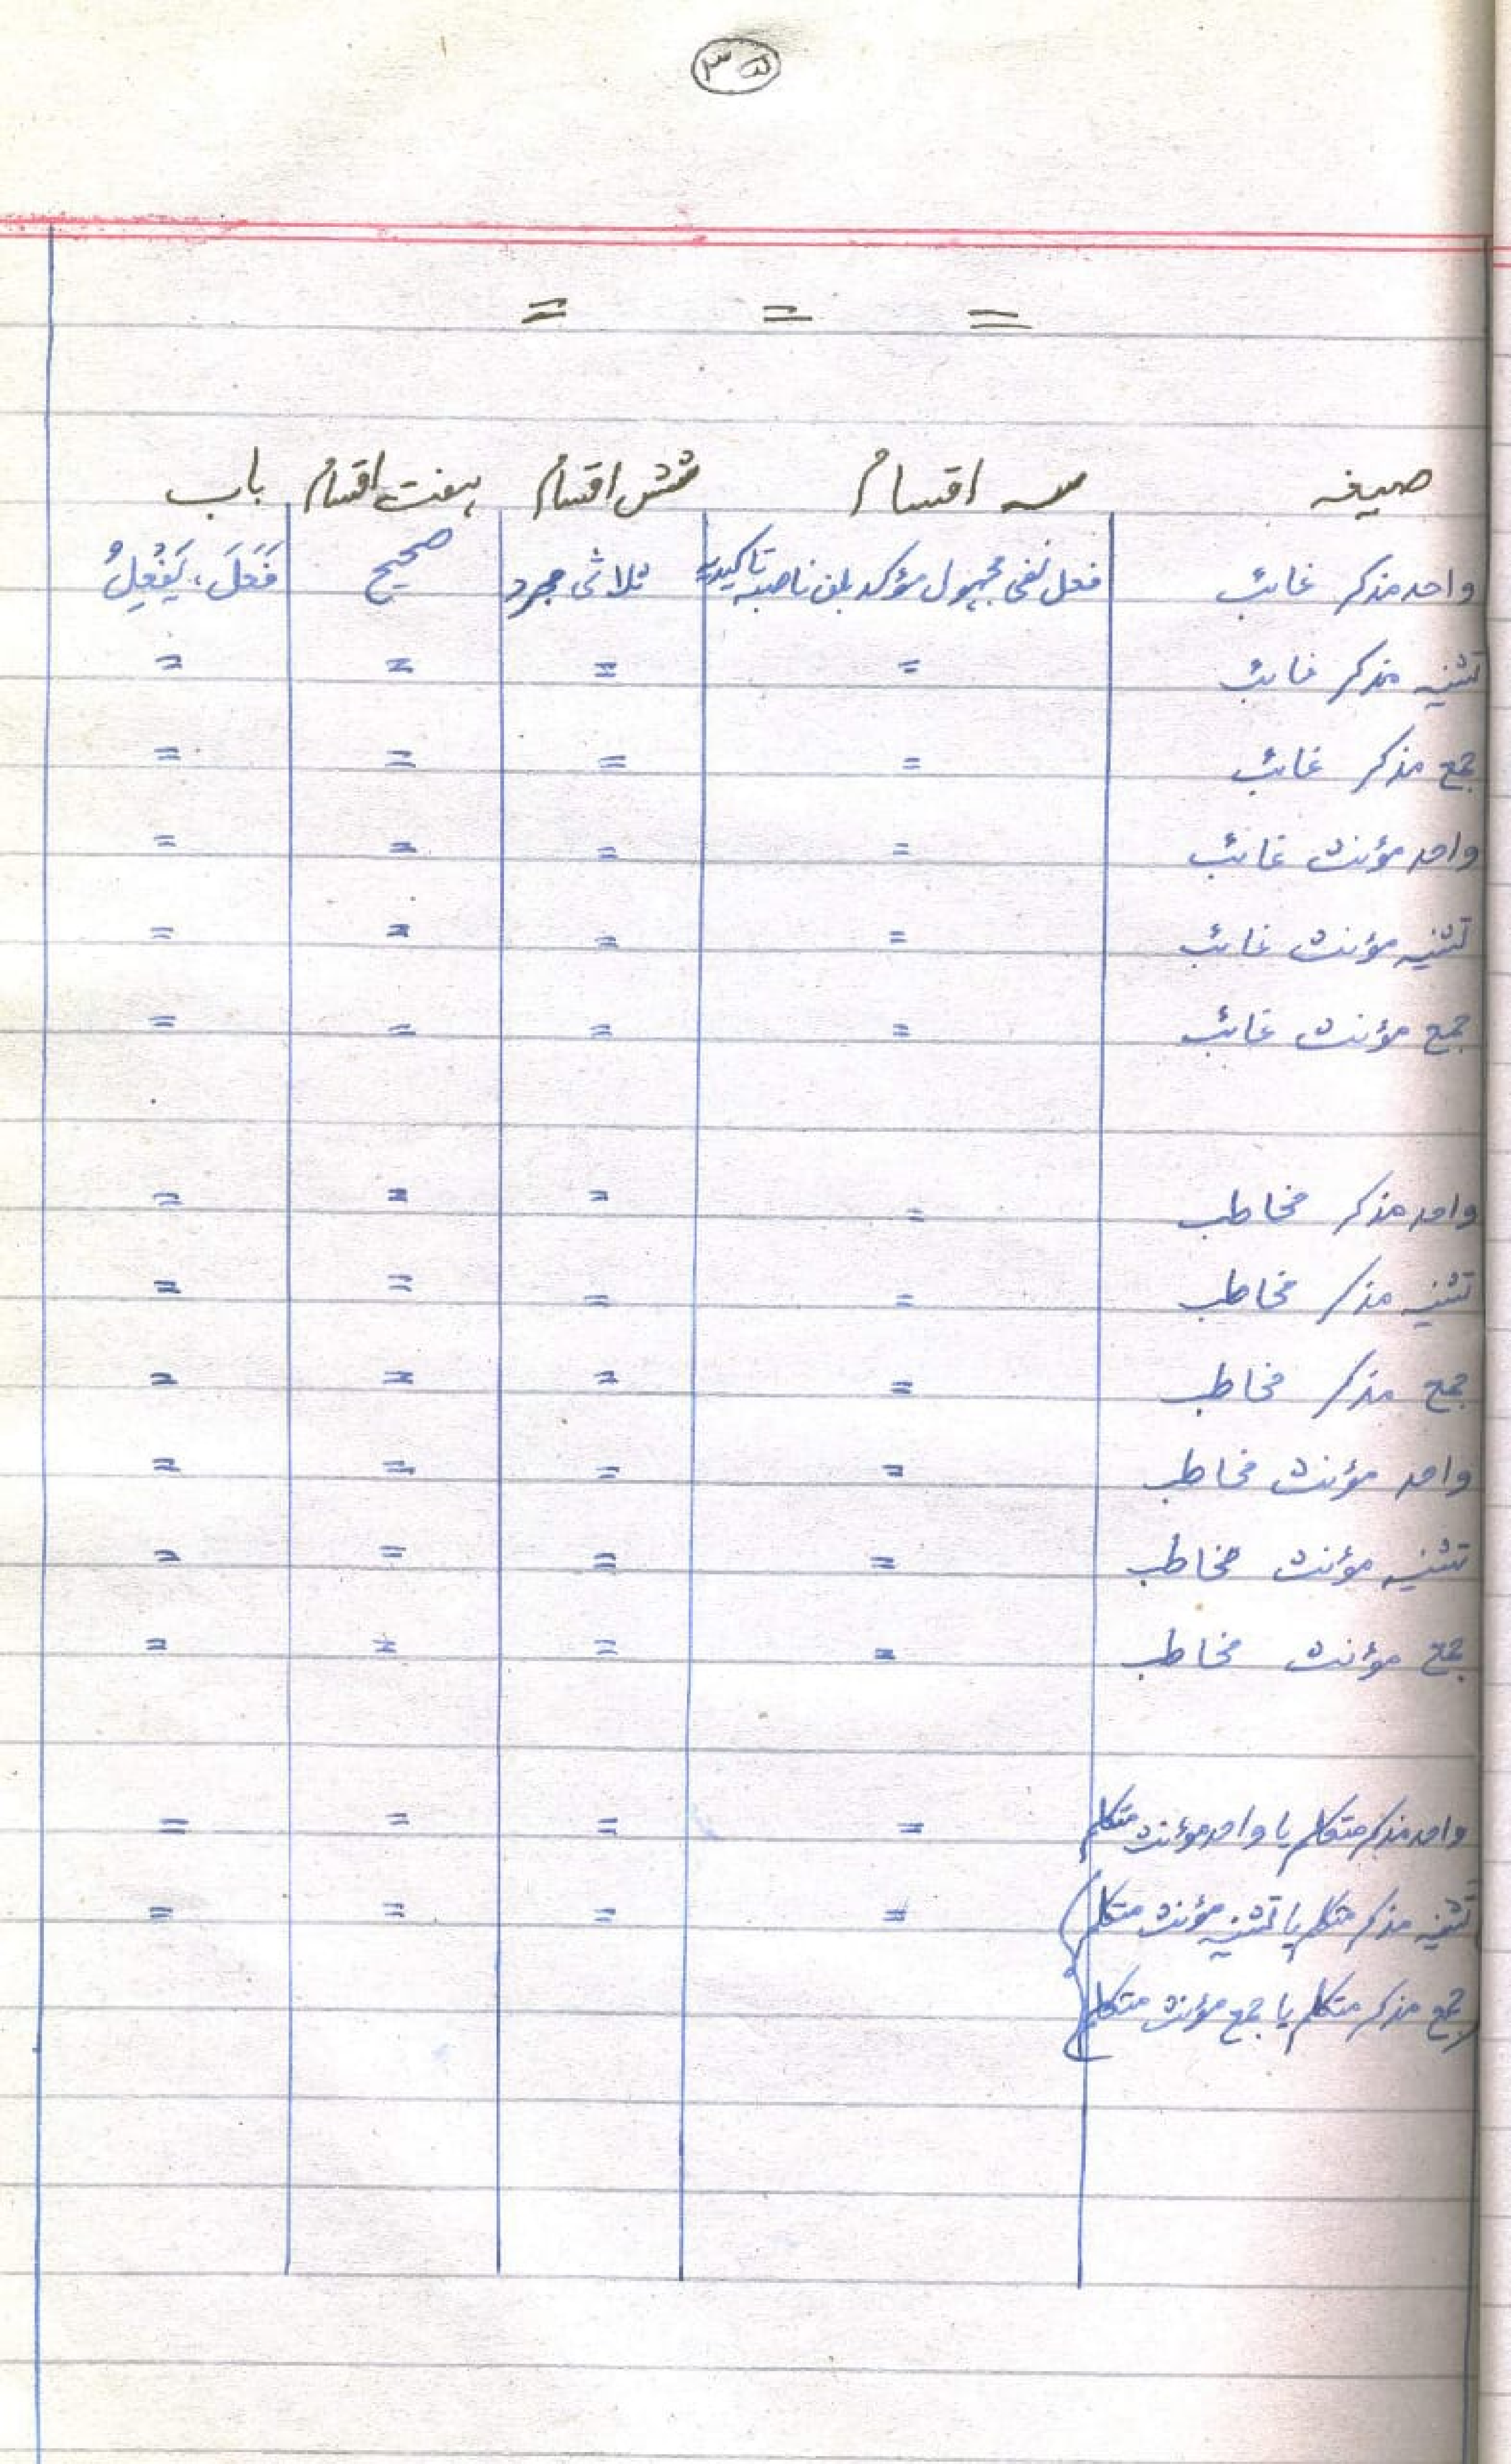 = = =
صیغہ سہ اقسام شش اقسام ہفت اقسام باب
واحد مذکر غائب فعل نفی مجہول مؤکد بلن ناصبہ تاکیدیہ ثلاثی مجرد صحیح فَعَلَ، یَفْعِلُ
تثنیہ مذکر غائب = = = =
جمع مذکر غائب = = = =
واحد مؤنث غائب = = = =
تثنیہ مؤنث غائب = = = =
جمع مؤنث غائب = = = =
واحد مذکر مخاطب = = = =
تثنیہ مذکر مخاطب = = = =
جمع مذکر مخاطب = = = =
واحد مؤنث مخاطب = = = =
تثنیہ مؤنث مخاطب = = = =
جمع مؤنث مخاطب = = = =
واحد مذکر متکلم یا واحد مؤنث متکلم = = = =
تثنیہ مذکر متکلم یا تثنیہ مؤنث متکلم = = = =
جمع مذکر متکلم یا جمع مؤنث متکلم